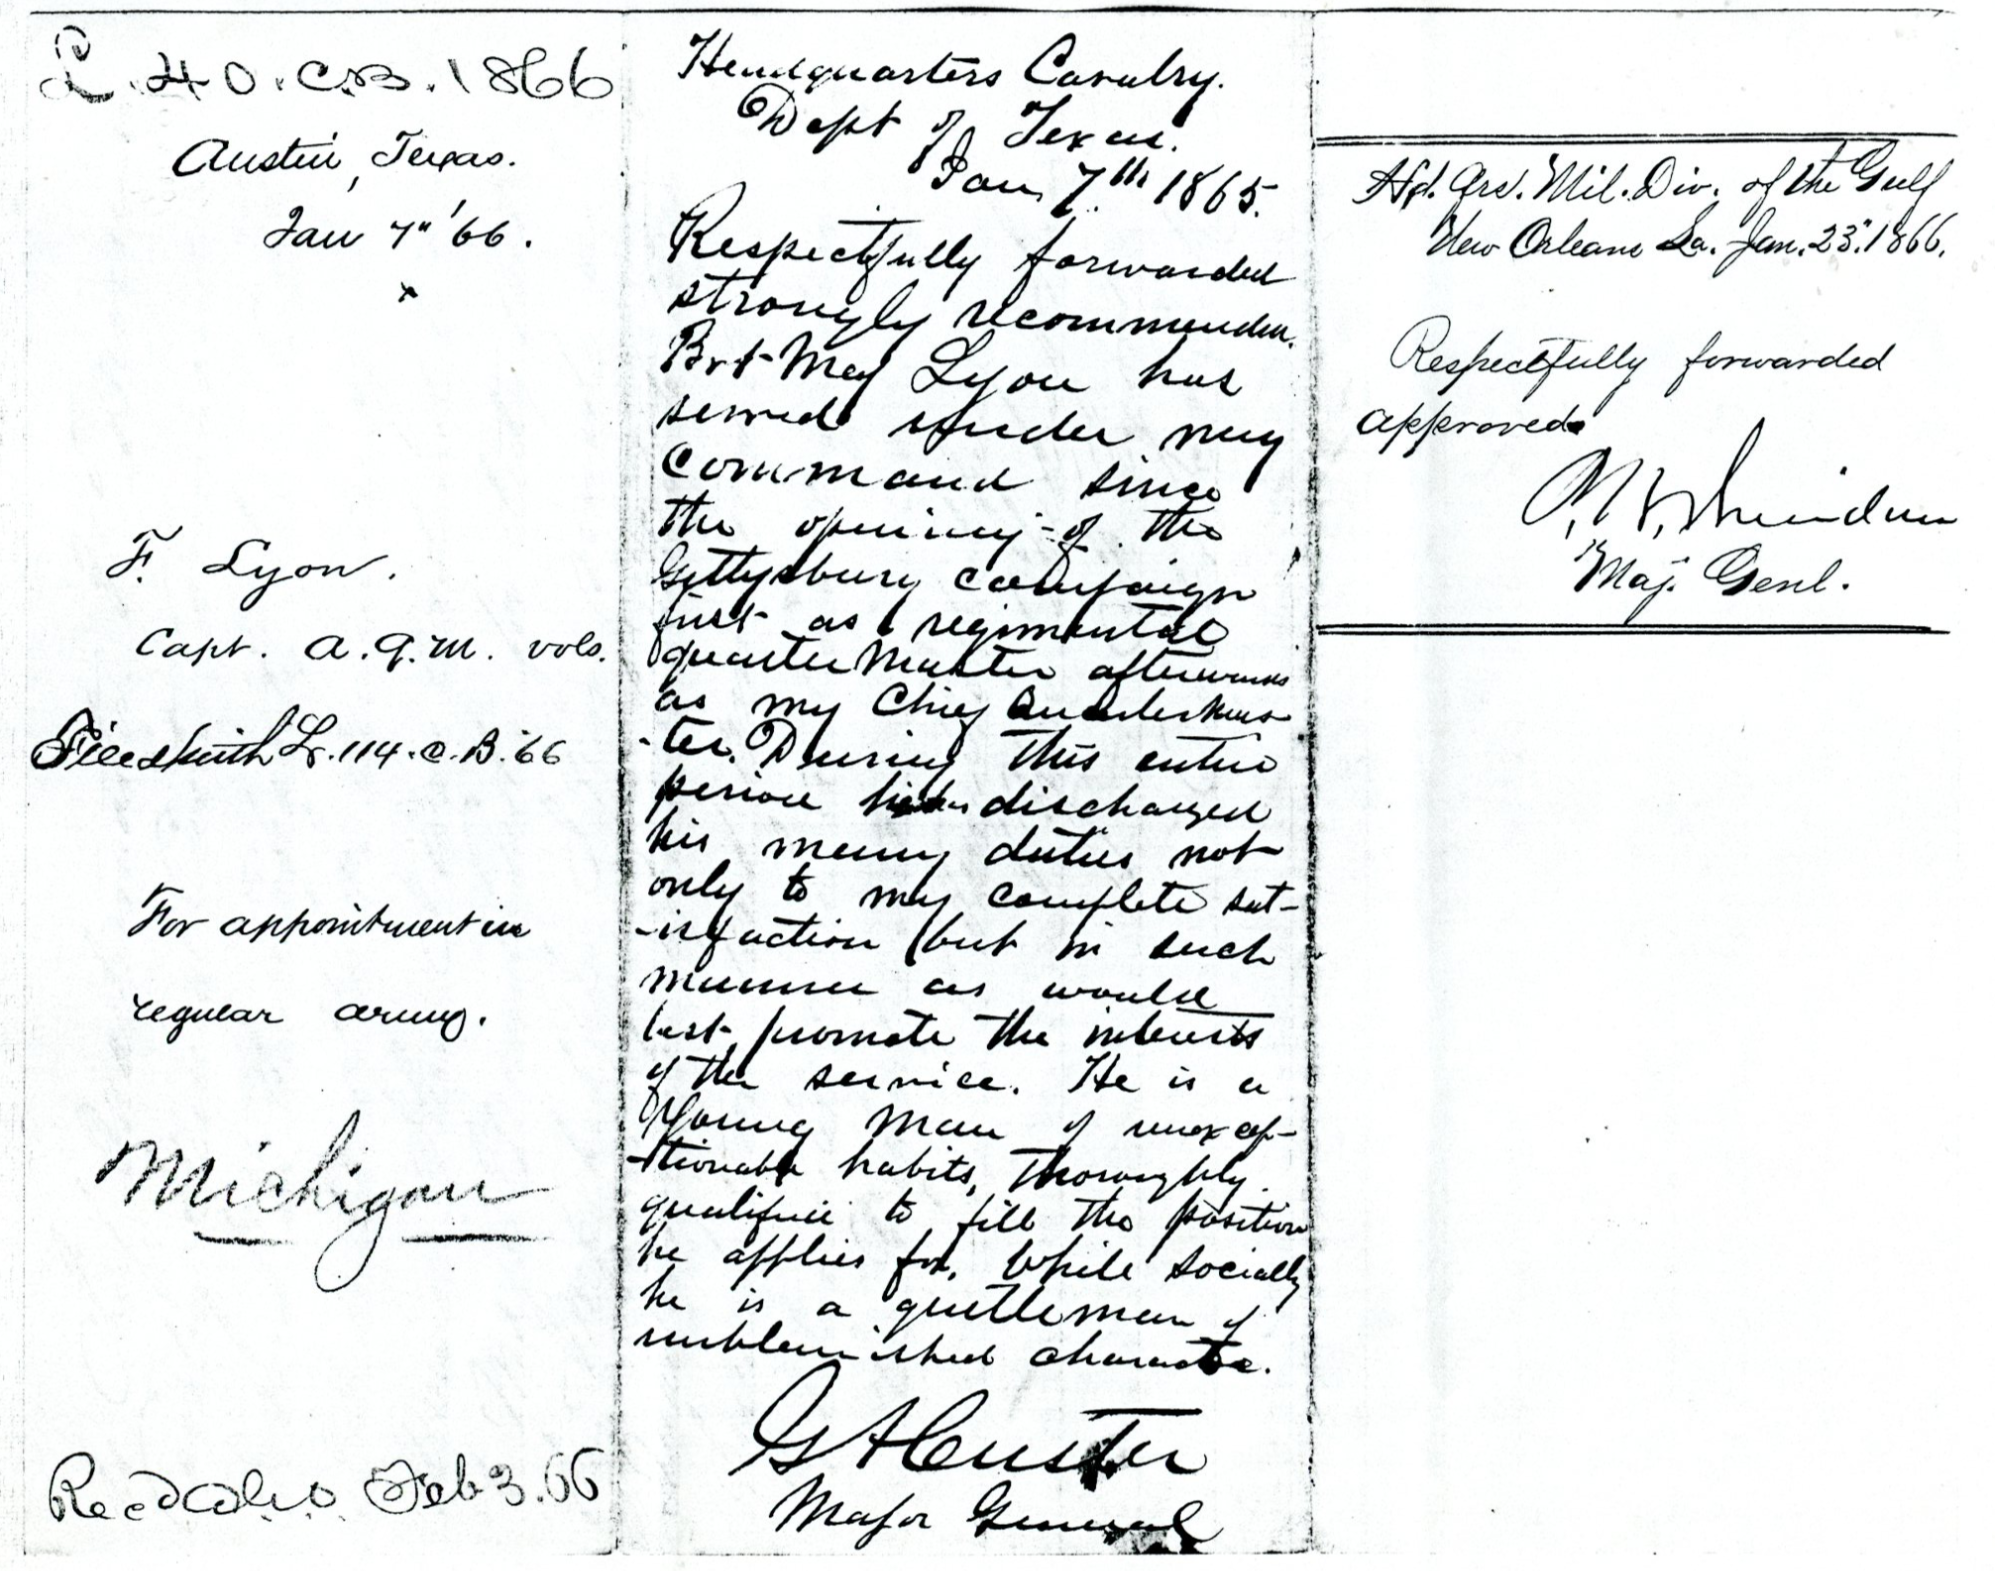 L. 40. C.B. 1866
Austin, Texas.
Jan 7" '66.
x
F. Lyon.
Capt. A.Q.M. vols.
Filed with L. 114. C.B. '66
For appointment in
regular army.
Michigan
Recd Feb 3. 66
Headquarters Cavalry.
Dept of Texas.
Jan 7th 1865.
Respectfully forwarded
strongly recommended.
Bvt Maj Lyon has
served under my
command since
the opening of the
Gettysburg campaign
first as regimental
quartermaster afterwards
as my Chief Quartermas-
-ter. During this entire
period he has discharged
his many duties not
only to my complete sat-
-isfaction but in such
manner as would
best promote the interests
of the service. He is a
young man of unexcep-
-tionable habits, thoroughly
qualified to fill the position
he applies for, while socially
he is a gentleman of
unblemished character.
GACuster
Major General
Hd. Qrs. Mil. Div. of the Gulf
New Orleans La. Jan. 23" 1866.
Respectfully forwarded
approved.
P.H. Sheridan
Maj. Genl.